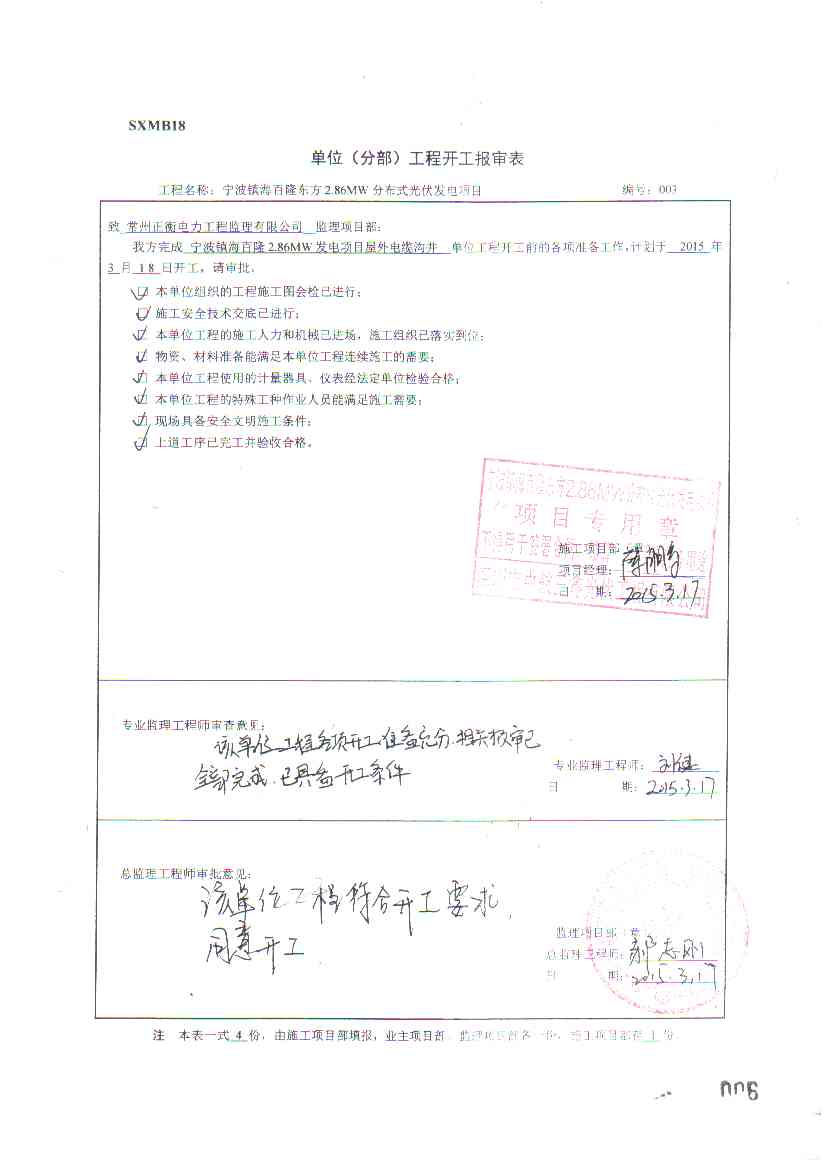 SXMB18
单位（分部）工程开工报审表
工程名称：宁波镇海百隆东方2.86MW分布式光伏发电项目 编号：003
致 常州正衡电力工程监理有限公司 监理项目部：
我方完成 宁波镇海百隆2.86MW发电项目屋外电缆沟井 单位工程开工前的各项准备工作,计划于 2015 年
3 月 18 日开工，请审批。
☑ 本单位组织的工程施工图会检已进行；
☑ 施工安全技术交底已进行；
☑ 本单位工程的施工人力和机械已进场，施工组织已落实到位；
☑ 物资、材料准备能满足本单位工程连续施工的需要；
☑ 本单位工程使用的计量器具、仪表经法定单位检验合格；
☑ 本单位工程的特殊工种作业人员能满足施工需要；
☑ 现场具备安全文明施工条件；
☑ 上道工序已完工并验收合格。
项目专用章
施工项目部（章）
项目经理：
日 期：2015.3.17
专业监理工程师审查意见：
该单位工程各项开工准备充分.相关报审已
全部完成.已具备开工条件
专业监理工程师：刘健
日 期：2015.3.17
总监理工程师审批意见：
该单位工程符合开工要求，
同意开工
监理项目部（章）
总监理工程师：郝志刚
日 期：2015.3.17
注 本表一式 4 份，由施工项目部填报，业主项目部、监理项目部各一份，施工项目部存 1 份。
006